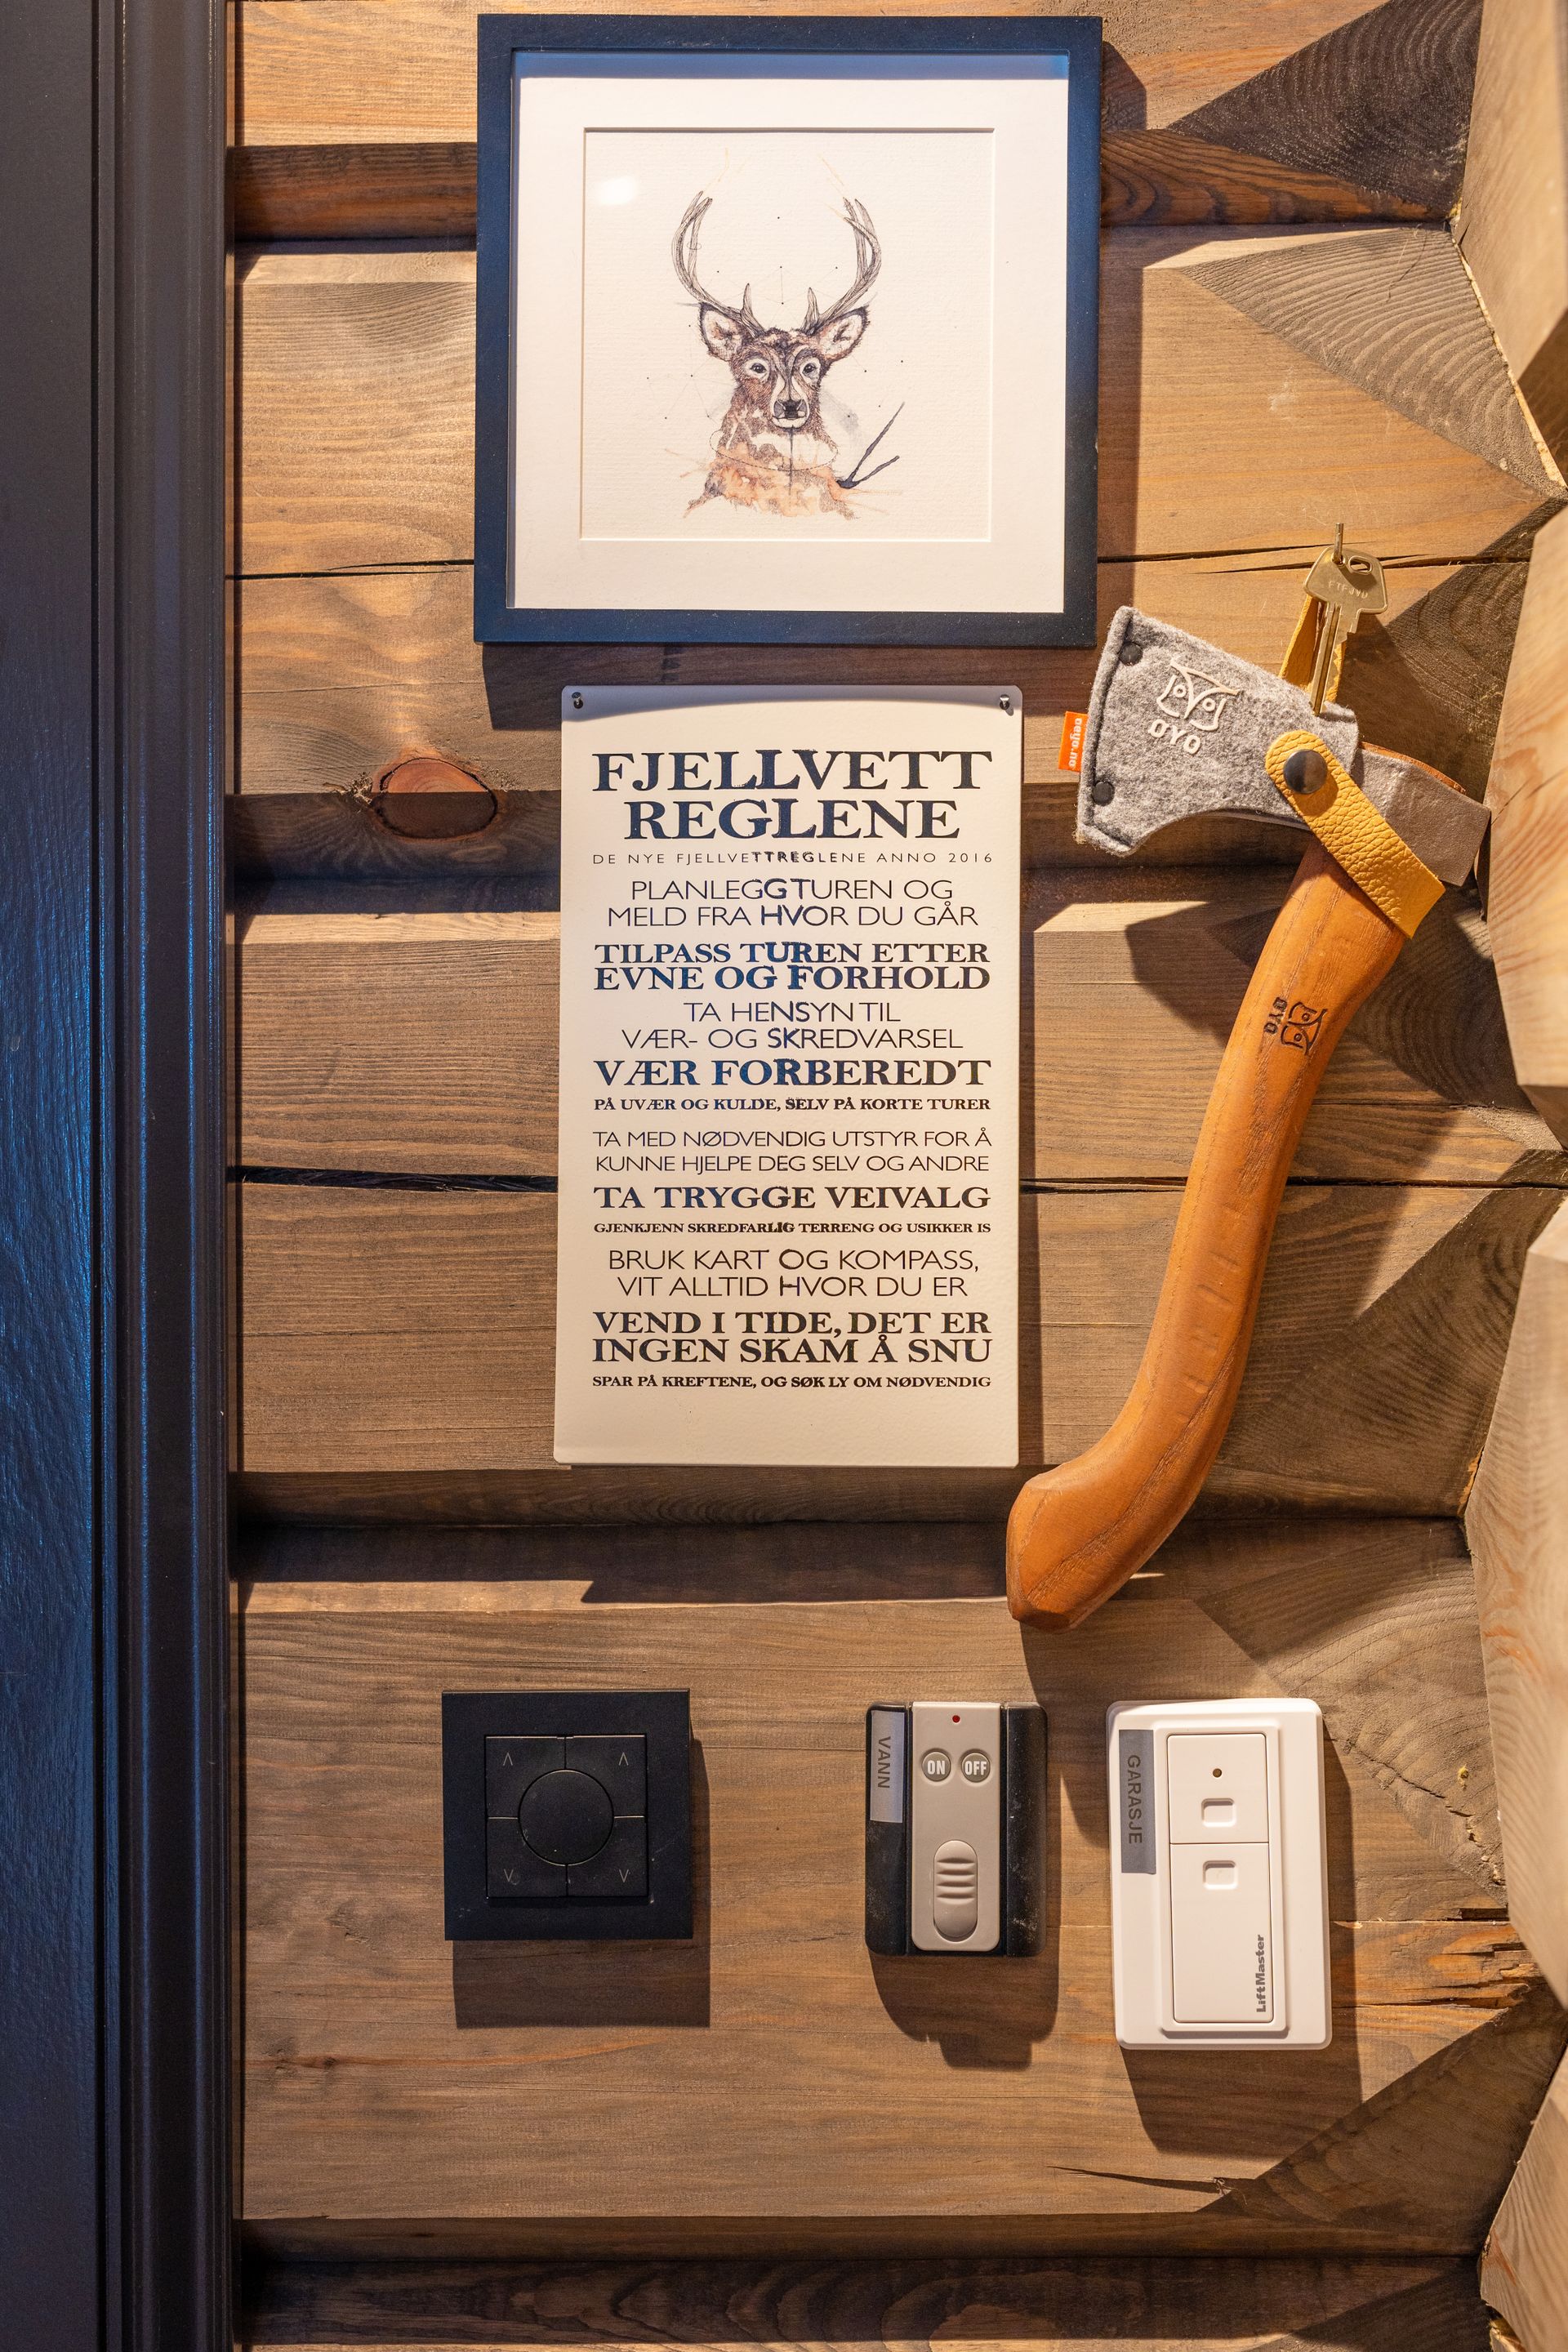 FJELLVETT
REGLENE
DE NYE FJELLVETTREGLENE ANNO 2016
PLANLEGG TUREN OG
MELD FRA HVOR DU GÅR
TILPASS TUREN ETTER
EVNE OG FORHOLD
TA HENSYN TIL
VÆR- OG SKREDVARSEL
VÆR FORBEREDT
PÅ UVÆR OG KULDE, SELV PÅ KORTE TURER
TA MED NØDVENDIG UTSTYR FOR Å
KUNNE HJELPE DEG SELV OG ANDRE
TA TRYGGE VEIVALG
GJENKJENN SKREDFARLIG TERRENG OG USIKKER IS
BRUK KART OG KOMPASS,
VIT ALLTID HVOR DU ER
VEND I TIDE, DET ER
INGEN SKAM Å SNU
SPAR PÅ KREFTENE, OG SØK LY OM NØDVENDIG
ØYO
oeyo.no
ØYO
VANN
ON OFF
GARASJE
LiftMaster